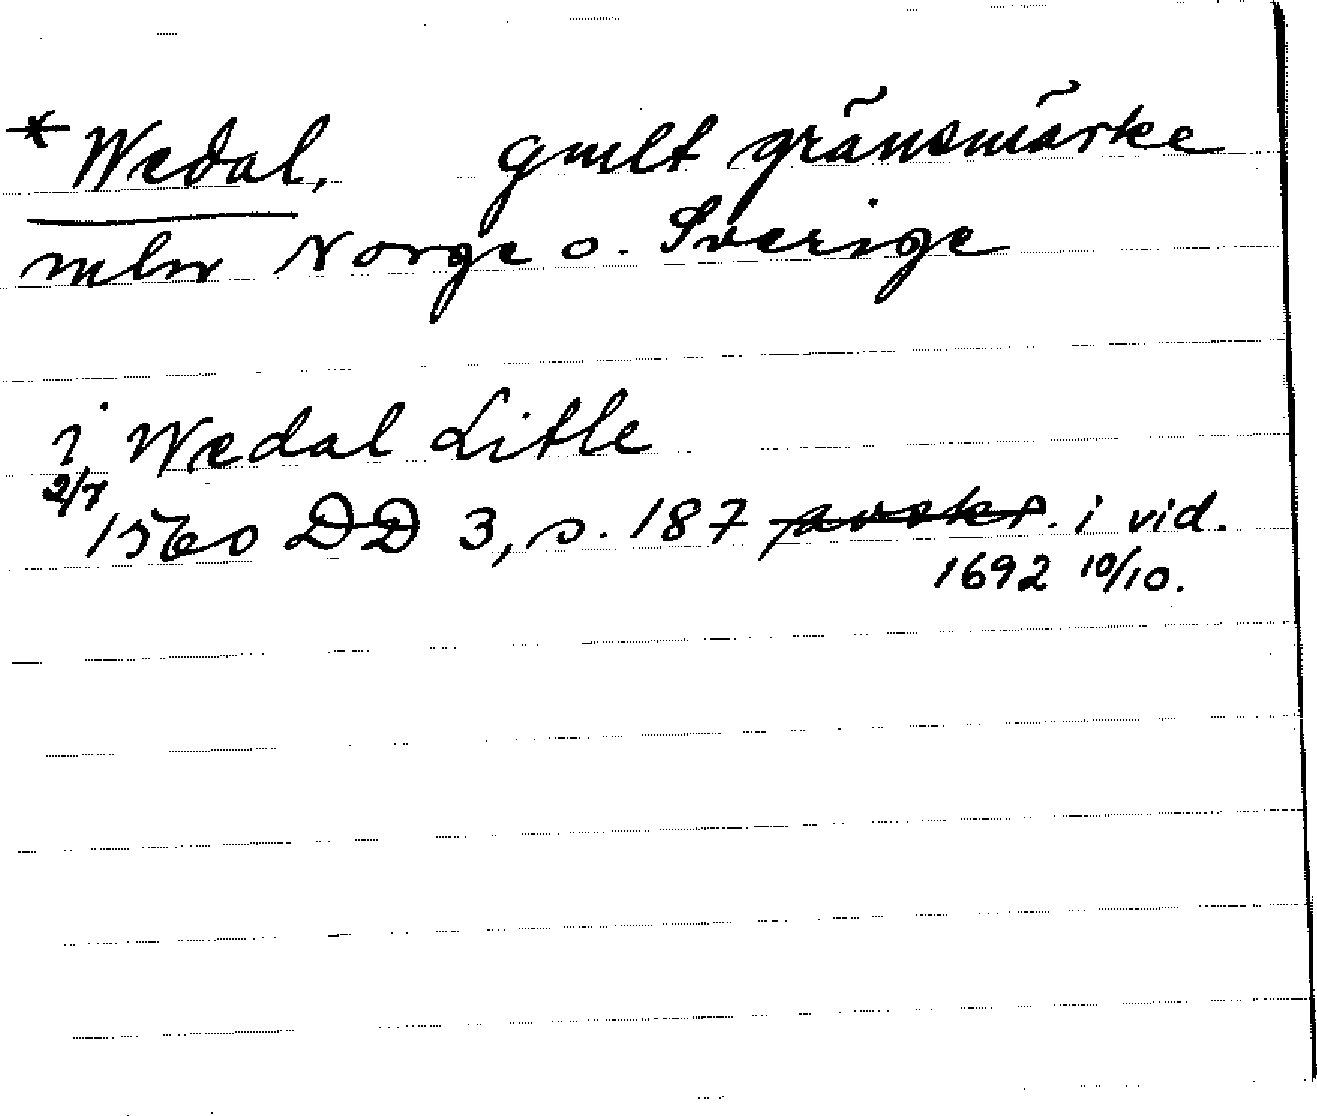 *Wedal, gmlt gränsmärke
mln Norge o. Sverige
i Wedal Litle
2/7
1560 DD 3, s. 187 avskr. i vid.
1692 10/10.